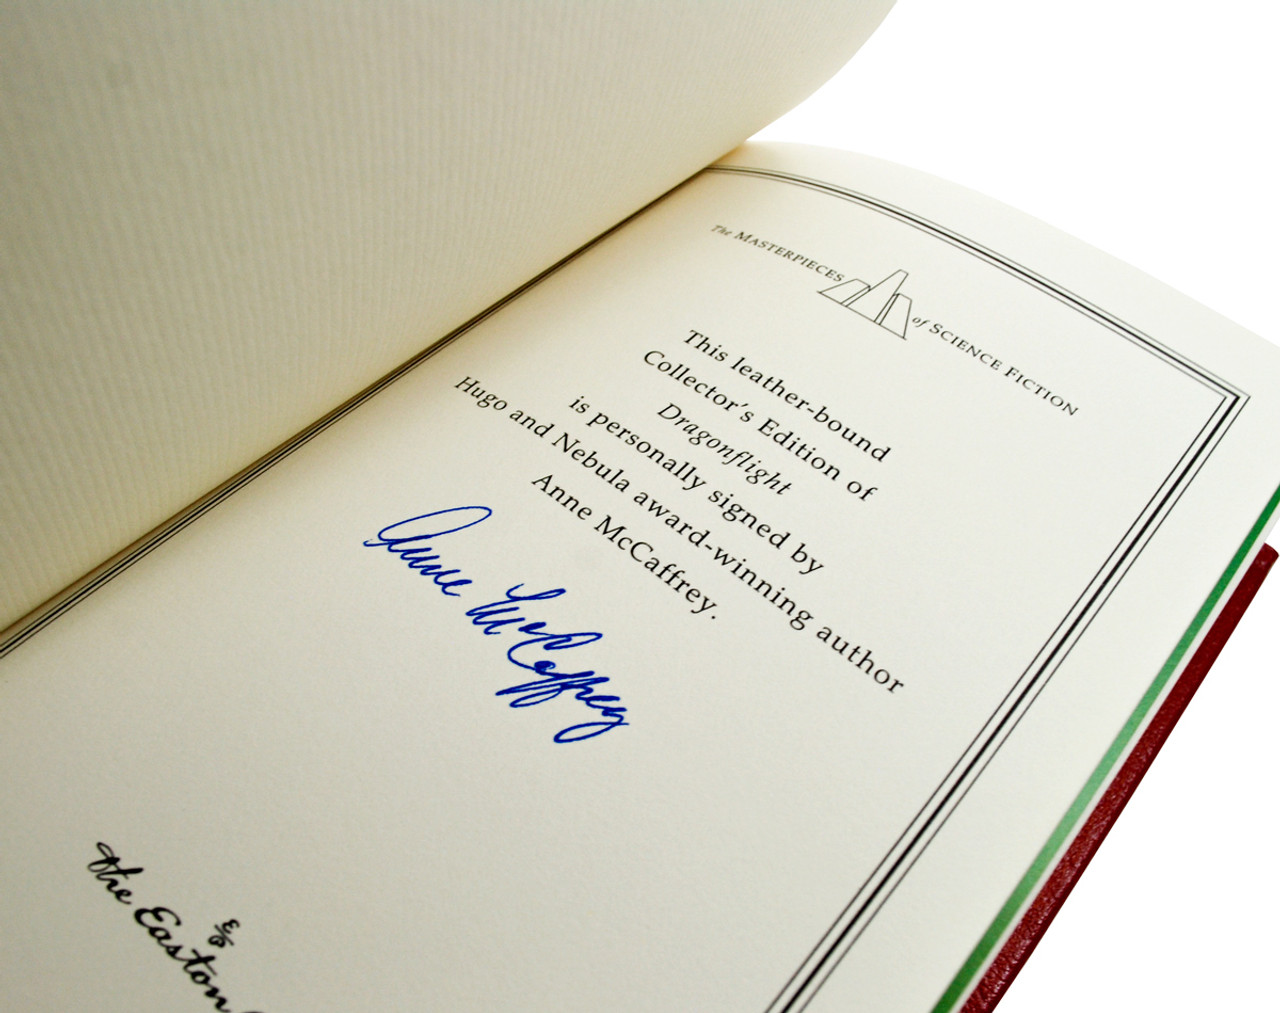 The MASTERPIECES of SCIENCE FICTION
This leather-bound
Collector's Edition of
Dragonflight
is personally signed by
Hugo and Nebula award-winning author
Anne McCaffrey.
Anne McCaffrey
The Easton